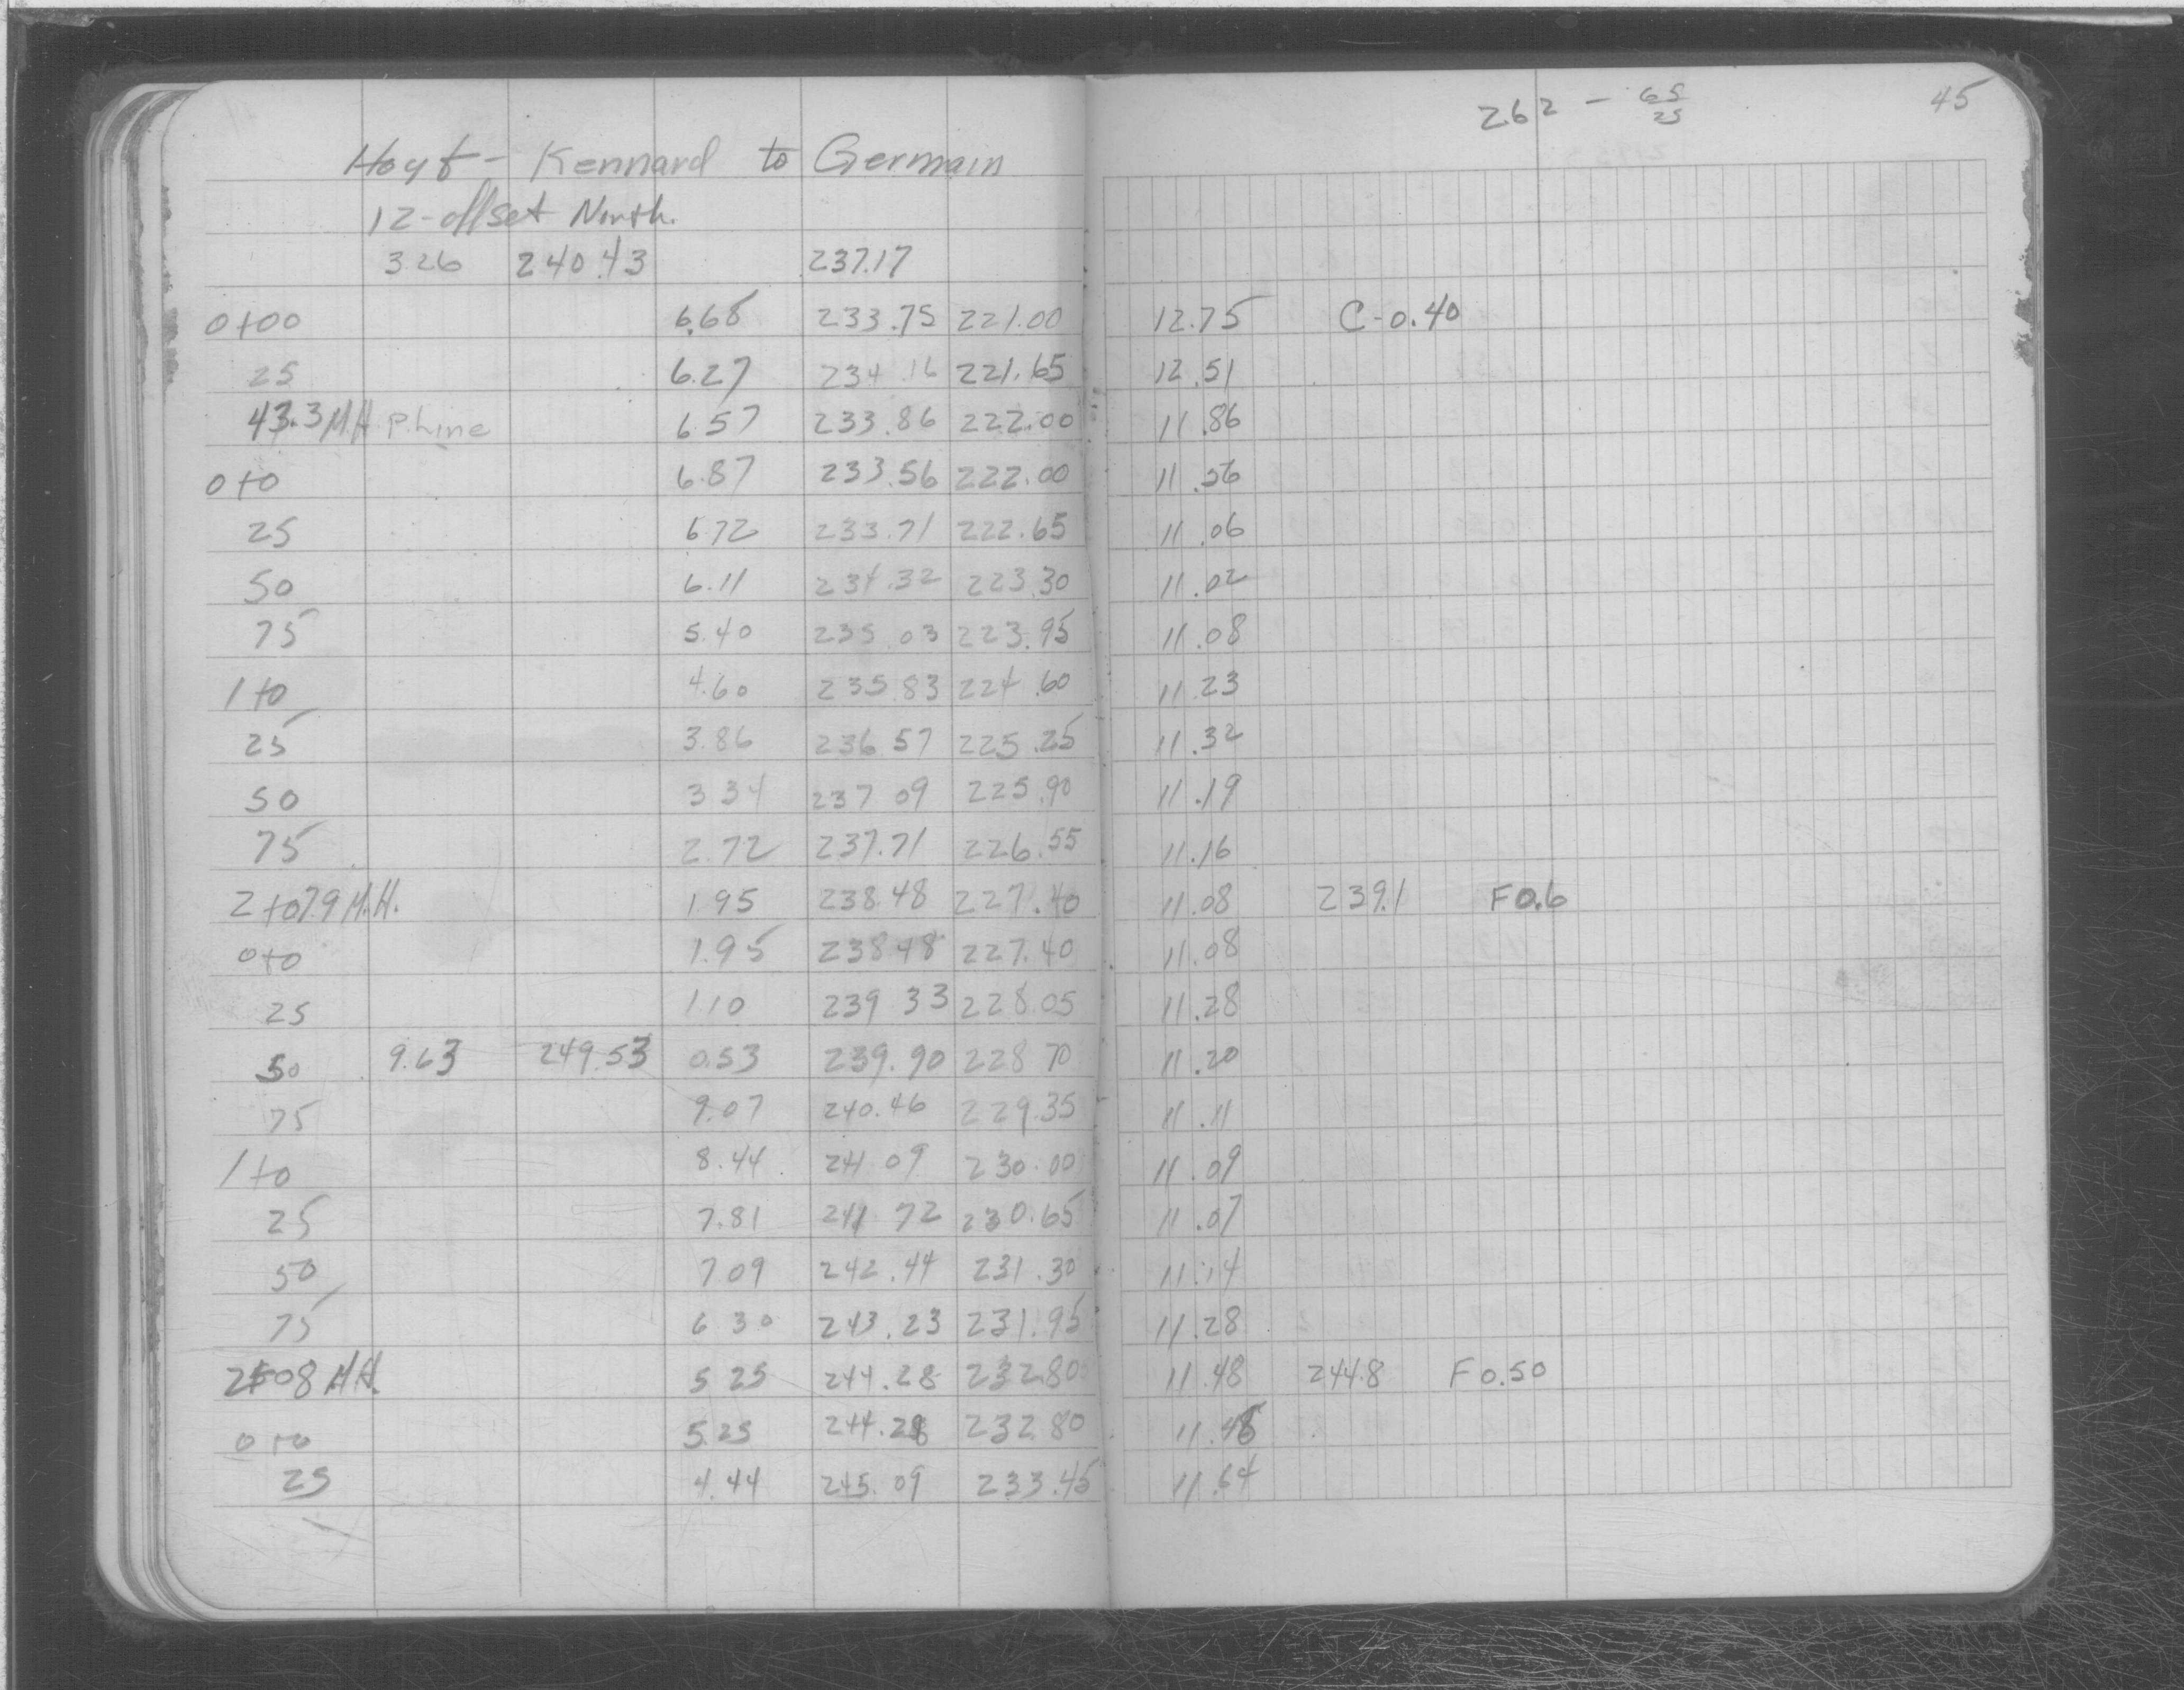 262 - 65/25 45
Hoyt - Kennard to Germain
12-offset North.
3.26 240.43 237.17
0+00 6.68 233.75 221.00 12.75 C-0.40
25 6.27 234.16 221.65 12.51
43.3 M.H. P.Line 6.57 233.86 222.00 11.86
0+0 6.87 233.56 222.00 11.56
25 6.72 233.71 222.65 11.06
50 6.11 234.32 223.30 11.02
75 5.40 235.03 223.95 11.08
1+0 4.60 235.83 224.60 11.23
25 3.86 236.57 225.25 11.32
50 3.34 237.09 225.90 11.19
75 2.72 237.71 226.55 11.16
2+07.9 M.H. 1.95 238.48 227.40 11.08 239.1 F0.6
0+0 1.95 238.48 227.40 11.08
25 1.10 239.33 228.05 11.28
50 9.63 249.53 0.53 239.90 228.70 11.20
75 9.07 240.46 229.35 11.11
1+0 8.44 241.09 230.00 11.09
25 7.81 241.72 230.65 11.07
50 7.09 242.44 231.30 11.14
75 6.30 243.23 231.95 11.28
2+08 M.H. 5.25 244.28 232.80 11.48 244.8 F0.50
0+0 5.25 244.28 232.80 11.48
25 4.44 245.09 233.45 11.64